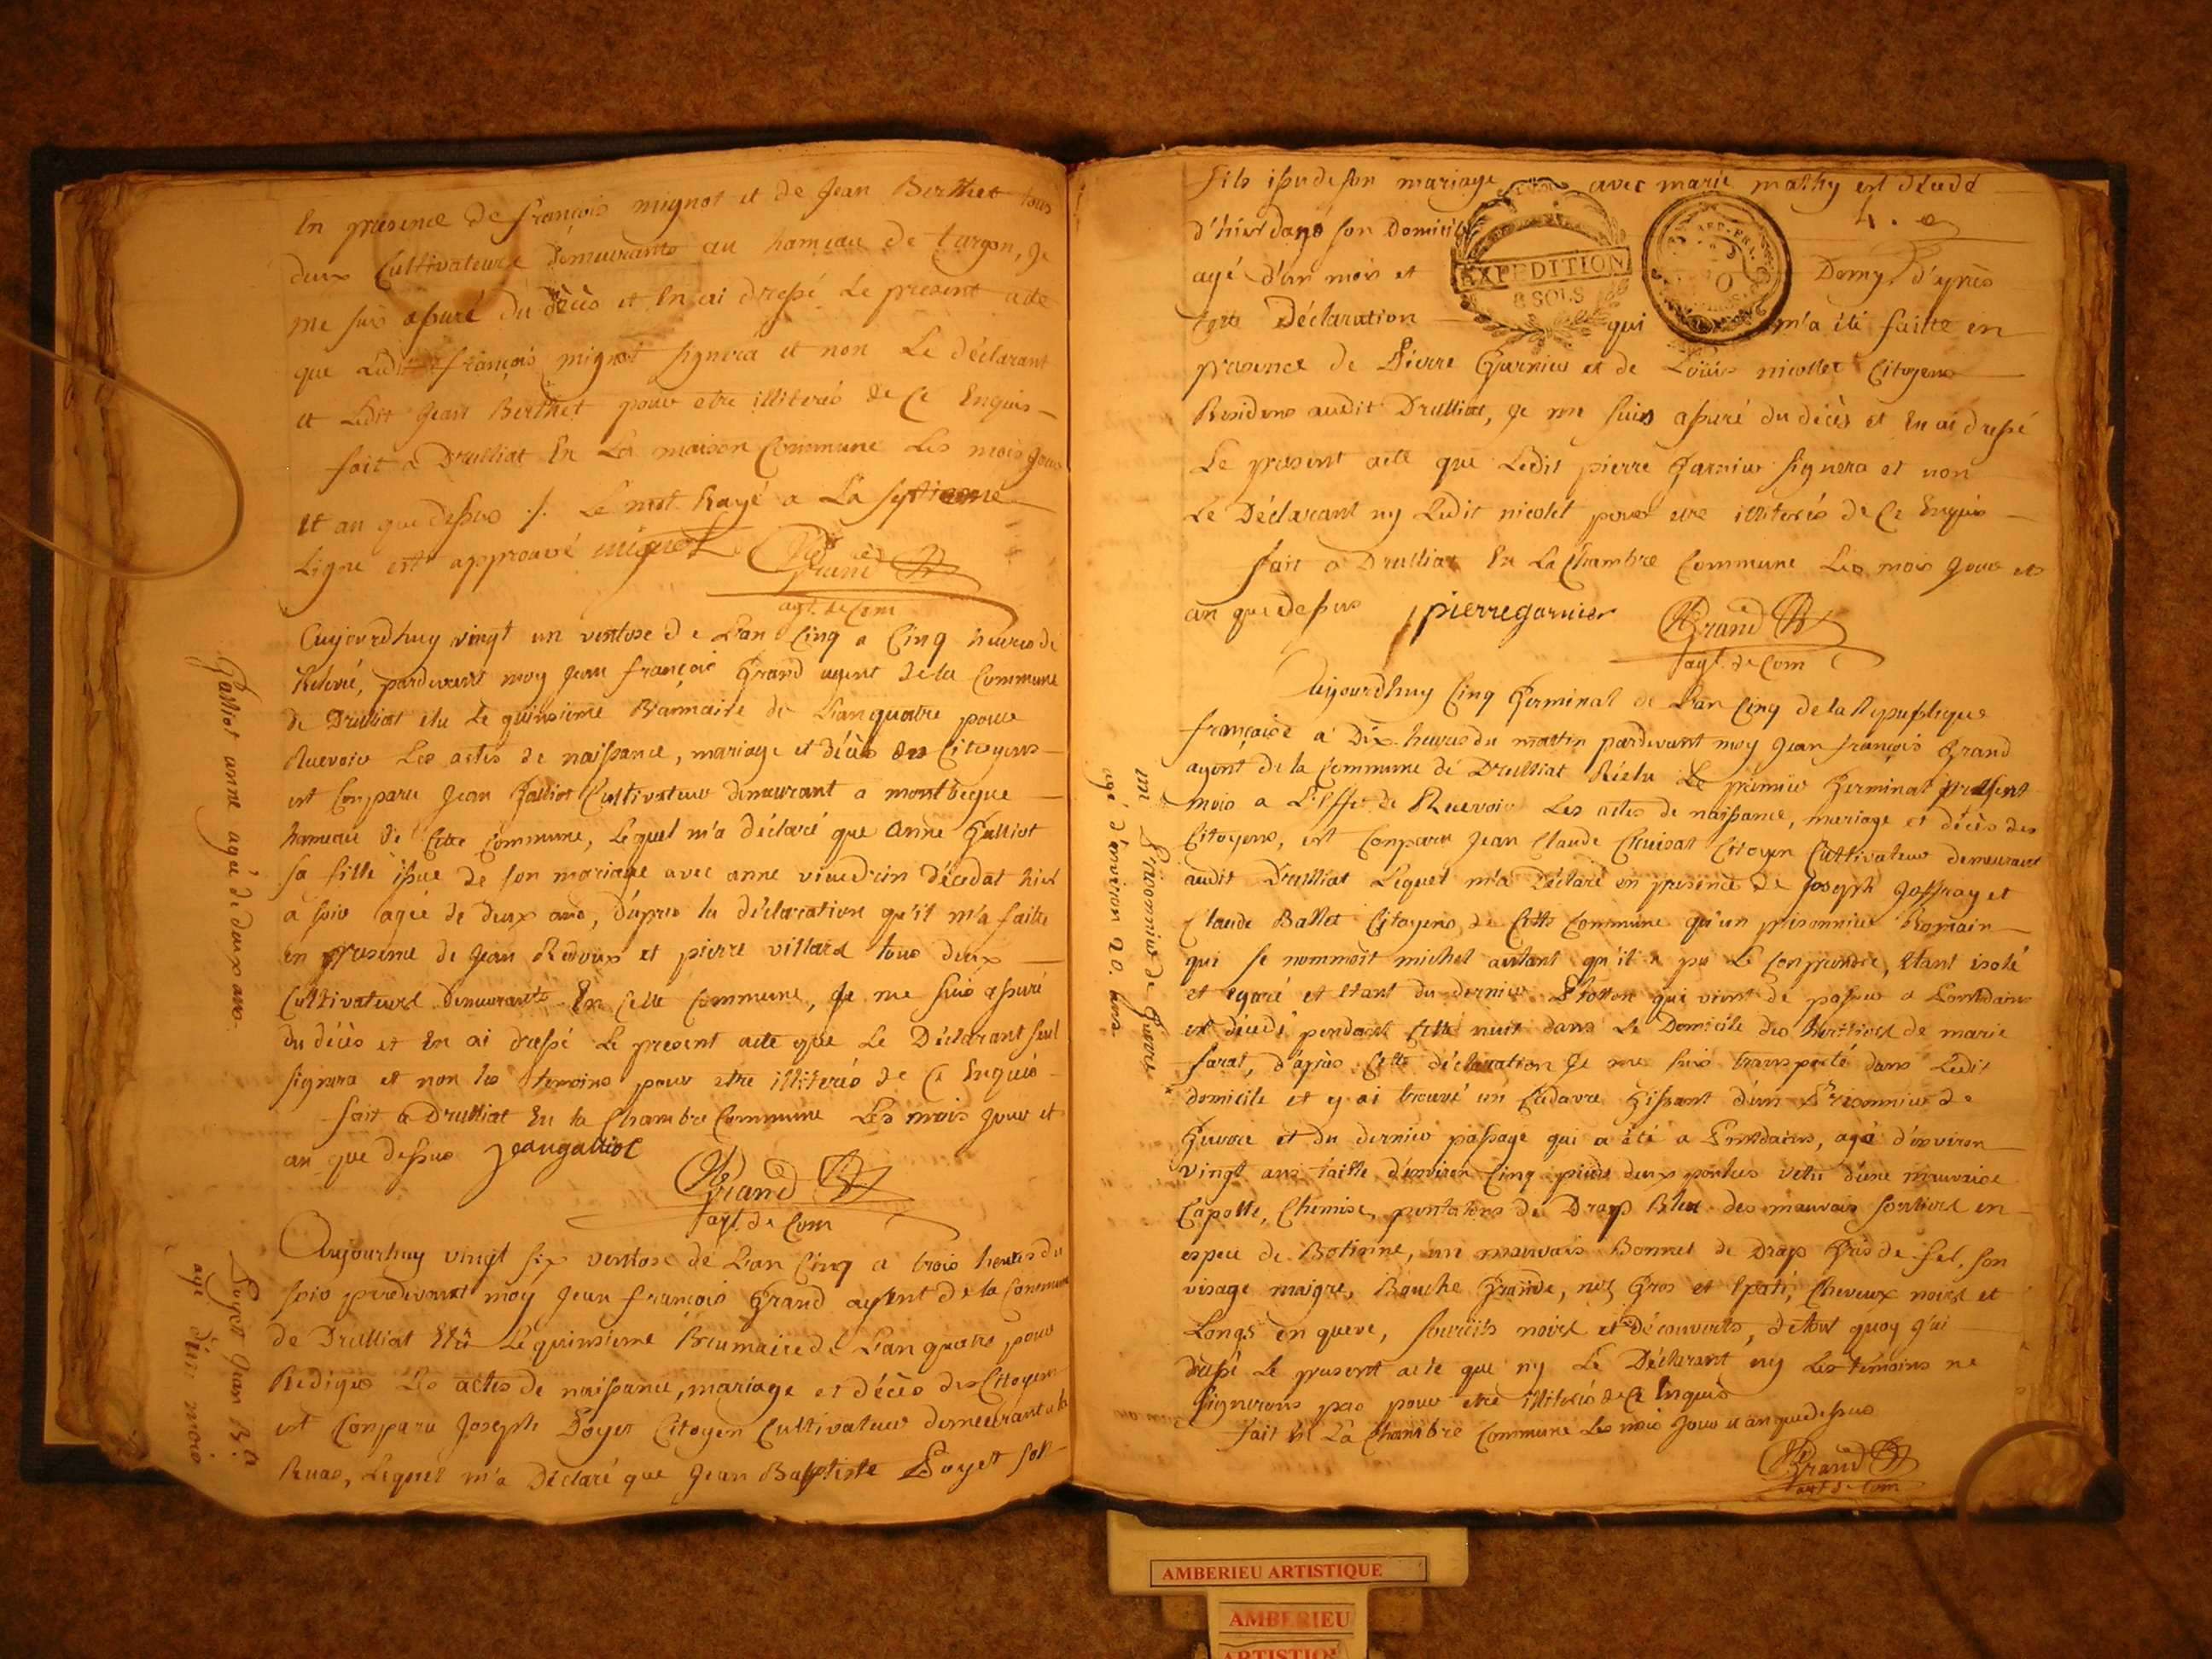 En presence de françois mignot et de Jean Berthet tous
deux Cultivateurs demeurants au hameau de turgon, je
me suis assuré du décès et En ai dressé Le present acte
que Ledit françois mignot signera et non Le déclarant
et Ledit Jean Berthet pour etre illiterés de Ce Enquis
fait a Druilliat En La maison Commune Les mois jour
Et an que dessus ./. Le mot Rayé a La septieme
Ligne est approuvé mignot Grand
agt. de Com
Aujourdhuy vingt un ventose de L'an Cinq a Cinq heures de
Relevé, pardevant moy Jean françois Grand agent de la Commune
de Druilliat élu Le quinsieme Brumaire de L'an quatre pour
Recevoir Les actes de naissance, mariage et décès des Citoyens
est Comparu Jean Galliot Cultivateur demeurant a montbegue
hameau de Cette Commune, Lequel m'a déclaré que Anne Galliot
sa fille issue de son mariage avec anne decedat hier
a soir agée de deux ans, d'après la déclaration qu'il m'a faite
en presence de Jean Redoux et pierre villard tous deux
Cultivateurs demeurants En Cette Commune, Je me suis assuré
du décès et En ai dressé Le present acte que Le Déclarant seul
signera et non les temoins pour etre illiterés de Ce Enquis
fait a Druilliat En la Chambre Commune Les mois jour et
an que dessus Jeangalliot
Grand
agt. de Com
Aujourhuy vingt six ventose de L'an Cinq a trois heures du
soir pardevant moy Jean françois Grand agent de la Commune
de Druilliat Elu Le quinsieme Brumaire de L'an quatre pour
Rediger Les actes de naissance, mariage et décès des Citoyens
est Comparu Joseph Poyet Citoyen Cultivateur demeurant a la
Ruaz, Lequel m'a Déclaré que Jean Baptiste Poyet son
Galliot anne agée de deux ans
Poyet Jean Bte.
agé d'un mois
fils issu de son mariage avec marie mathy est decedé
d'hier dans son Domicile
4.
agé d'un mois et Demy, d'après
EXPEDITION
8 SOLS
Cette Déclaration qui m'a été faitte en
presence de Pierre Garnier et de Loüis nicollet Citoyens
Residens audit Druilliat, je me suis assuré du décès et En ai dressé
Le present acte que Ledit pierre Garnier signera et non
Le Déclarant ny Ledit nicolet pour etre illiterés de Ce Enquis
fait a Druilliat En La Chambre Commune Les mois jour et
an que dessus pierregarnier Grand
agt. de Com
Aujourdhuy Cinq Germinal de L'an Cinq de la Republique
française a Dix heures du matin pardevant moy Jean françois Grand
agent de la Commune de Druilliat Réélu Le premier Germinal present
mois a L'Effet de Recevoir Les actes de naissance, mariage et décès des
Citoyens, est Comparu Jean Claude Citoyen Cultivateur demeurant
audit Druilliat Lequel m'a Déclaré en presence de Joseph Joffray et
Claude Ballet Citoyens de Cette Commune qu'un prisonnier Romain
qui se nommoit michel autant qu'il a pu Le Comprendre, Etant isolé
et egaré et Etant du dernier qui vient de passer a Pontdains
est décédé pendant Cette nuit dans Le Domicile des heritiers de marie
farat, d'après Cette déclaration Je me suis transporté dans Ledit
domicile et y ai trouvé un Cadavre Gissant d'un Prisonnier de
Guerre et du dernier passage qui a été a Pontdains, agé d'environ
vingt ans taille d'environ Cinq pieds deux pouces vetu d'une mauvaise
Capotte, Chemise, pentalons de Drap Bleu des mauvais souliers en
espece de Botinne, un mauvais Bonnet de Drap Gris de fel, son
visage maigre, Bouche Grande, nez Gros et Epaté, Cheveux noirs et
Longs en queue, sourcils noirs et découverts, de tout quoy j'ai
dressé Le present acte que ny Le Déclarant ny Les temoins ne
signerons pas pour etre illiterés de Ce Enquis
fait En La Chambre Commune Les mois jour et an que dessus
Grand
agt de Com
un Prisonnier de Guerre
agé d'environ 20. ans
AMBERIEU ARTISTIQUE
AMBERIEU
ARTISTIQUE